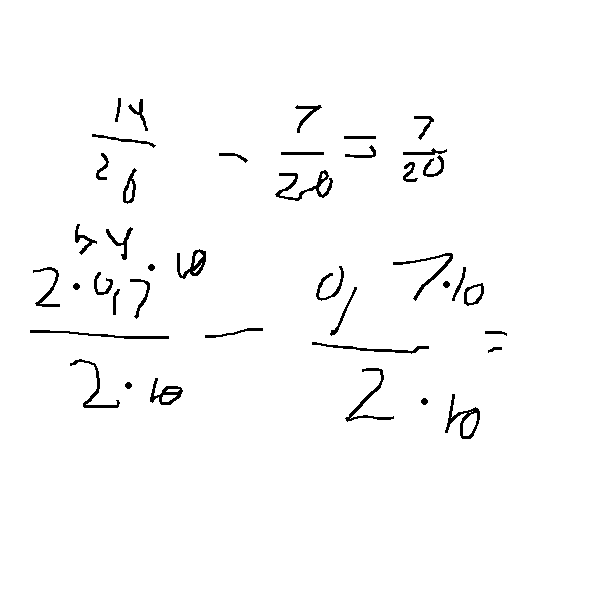 14/20 - 7/20 = 7/20
1,4
2·0,7·10/2·10 - 0,7·10/2·10 =